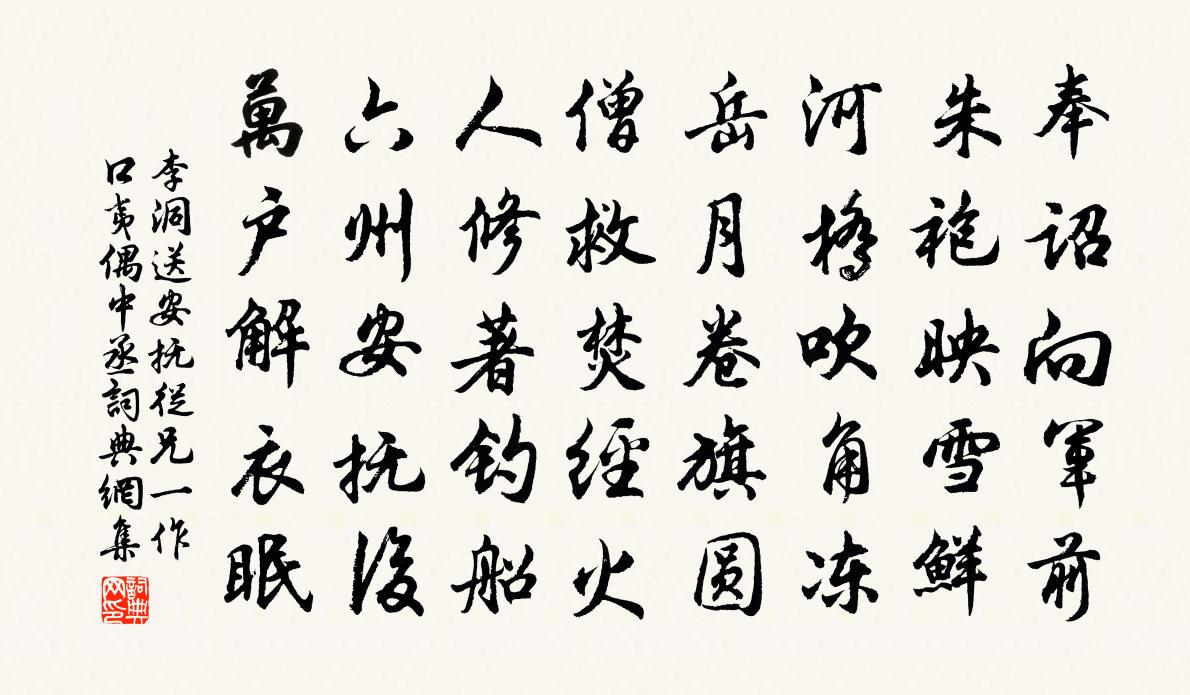 奉詔向軍前
朱袍映雪鮮
河橋吹角凍
岳月卷旗圓
僧救焚經火
人修著釣船
六州安抚後
萬户解衣眠
李洞送安抚從兄一作
口夷偶中丞詞典網集
詞典网印